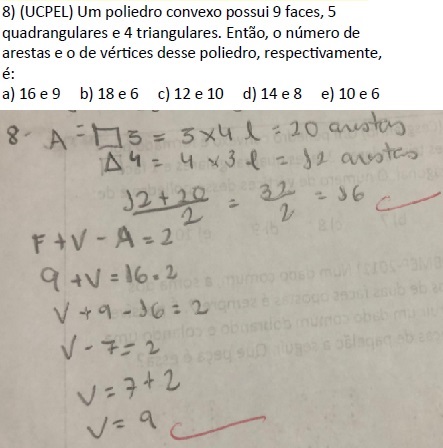 8) (UCPEL) Um poliedro convexo possui 9 faces, 5
quadrangulares e 4 triangulares. Então, o número de
arestas e o de vértices desse poliedro, respectivamente,
é:
a) 16 e 9 b) 18 e 6 c) 12 e 10 d) 14 e 8 e) 10 e 6
8- A = □ 5 = 5 x 4 l = 20 arestas
△ 4 = 4 x 3 l = 12 arestas
12 + 20 / 2 = 32 / 2 = 16 C
F + V - A = 2
9 + V = 16 = 2
V + 9 - 16 = 2
V - 7 = 2
V = 7 + 2
V = 9 C